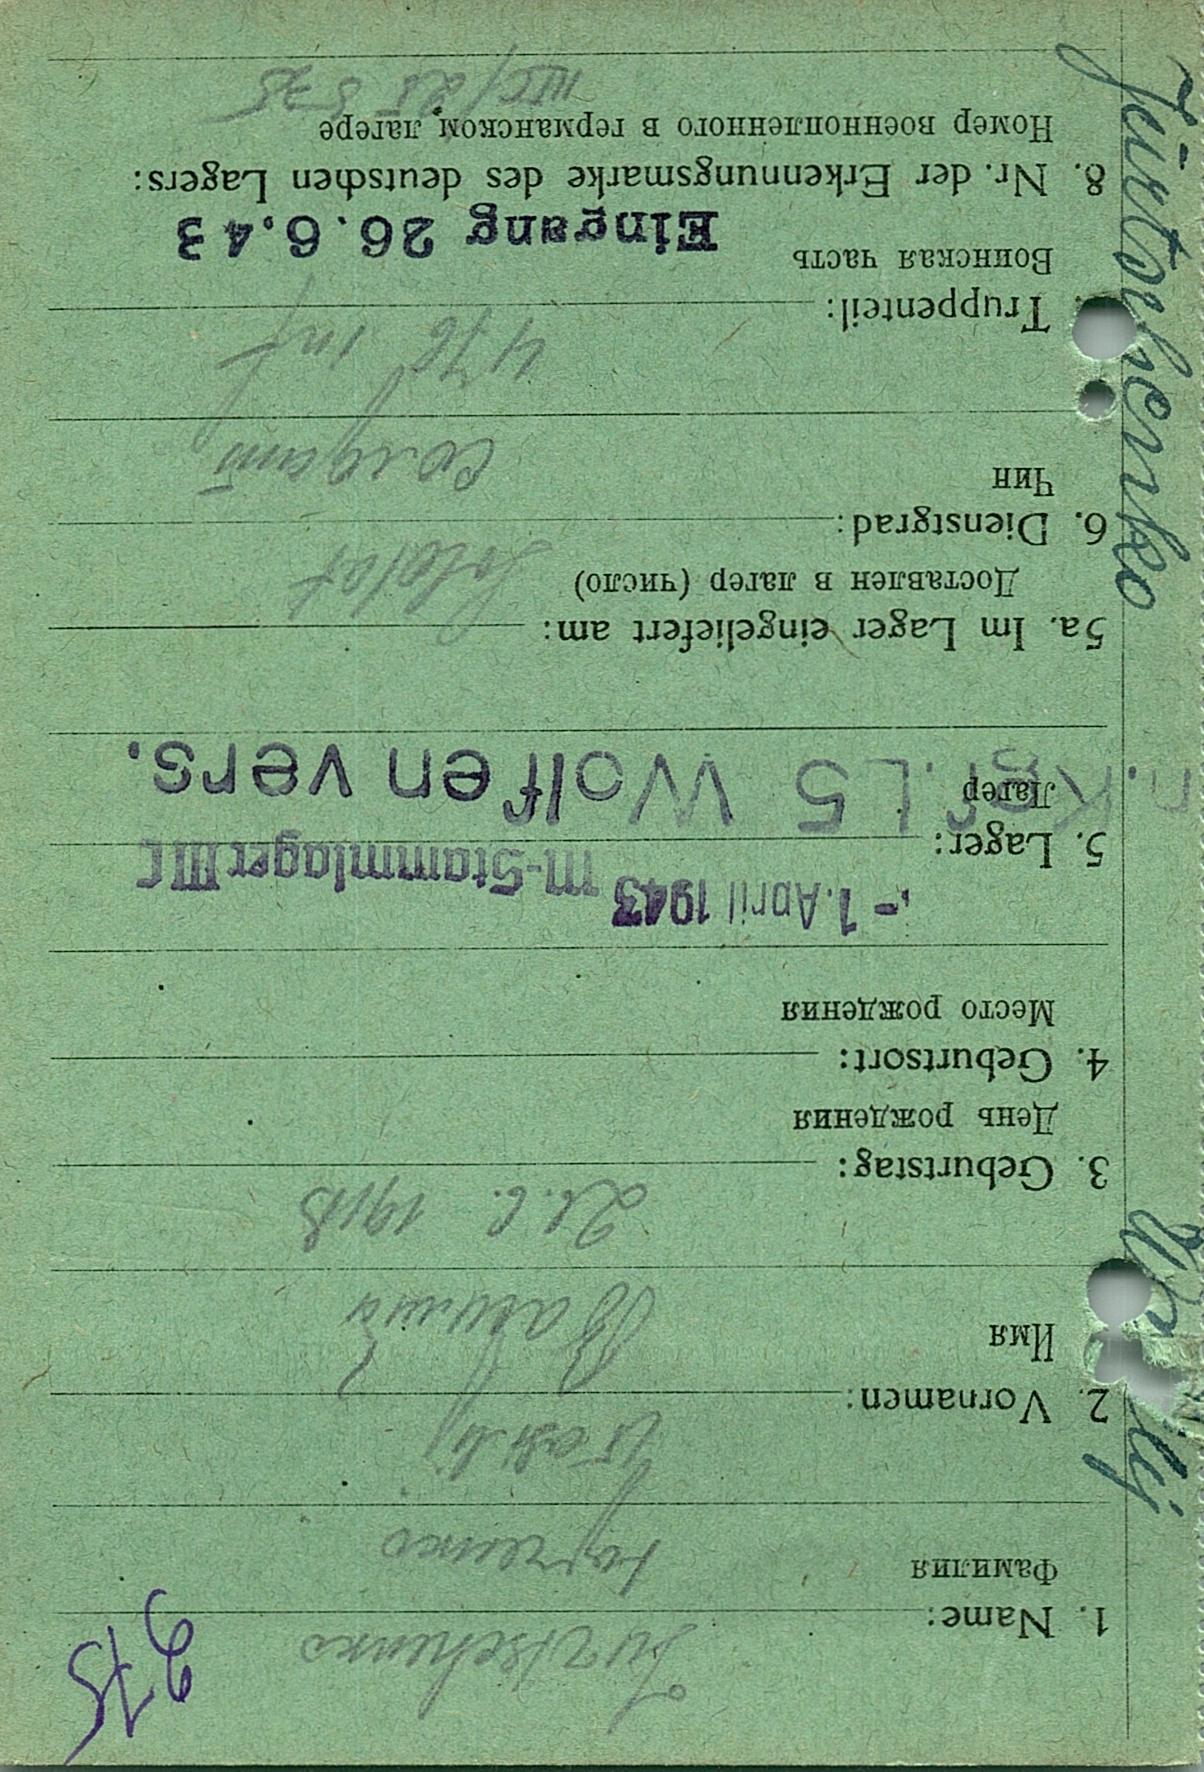 975
1. Name:
Фамилия
2. Vornamen:
Имя
Василий
3. Geburtstag: 21.6. 1918
День рождения
4. Geburtsort:
Место рождения
- 1. April 1943 M-Stammlager III C
5. Lager:
Лагер
n. Kgf. L 5 Wolfen vers.
5a. Im Lager eingeliefert am:
Доставлен в лагер (число)
Soldat
6. Dienstgrad:
Чин
солдат
476 inf
Truppenteil:
Воинская часть
Eingang 26. 6. 43
8. Nr. der Erkennungsmarke des deutschen Lagers:
Номер военнопленного в германском лагере
III C/25 575